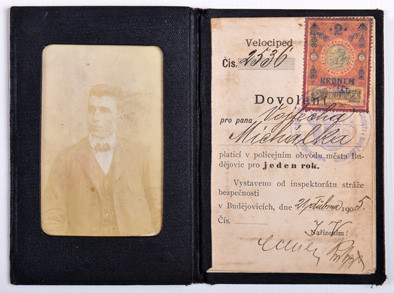 Velociped
Čís. 2536
2
KRONEN
Dovolení
pro pana Vojtěcha
Michálka
platící v policejním obvodu města Bu-
dějovic pro jeden rok.
Vystaveno od inspektorátu stráže
bezpečnosti
v Budějovicích, dne 21 dubna 1905.
Čís.
Nařízením: